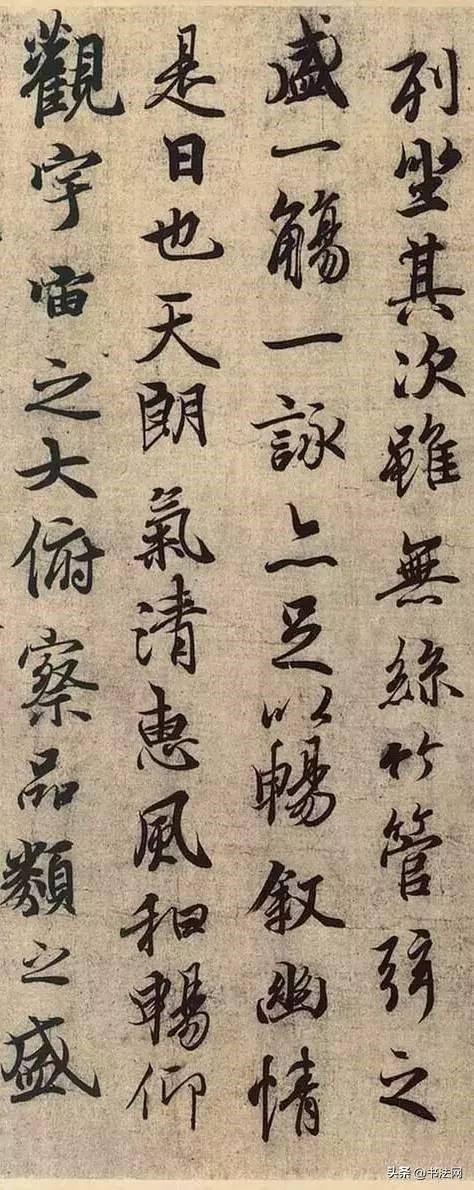 列坐其次雖無絲竹管弦之
盛一觴一詠亦足以暢敘幽情
是日也天朗氣清惠風和暢仰
觀宇宙之大俯察品類之盛
头条@书法网